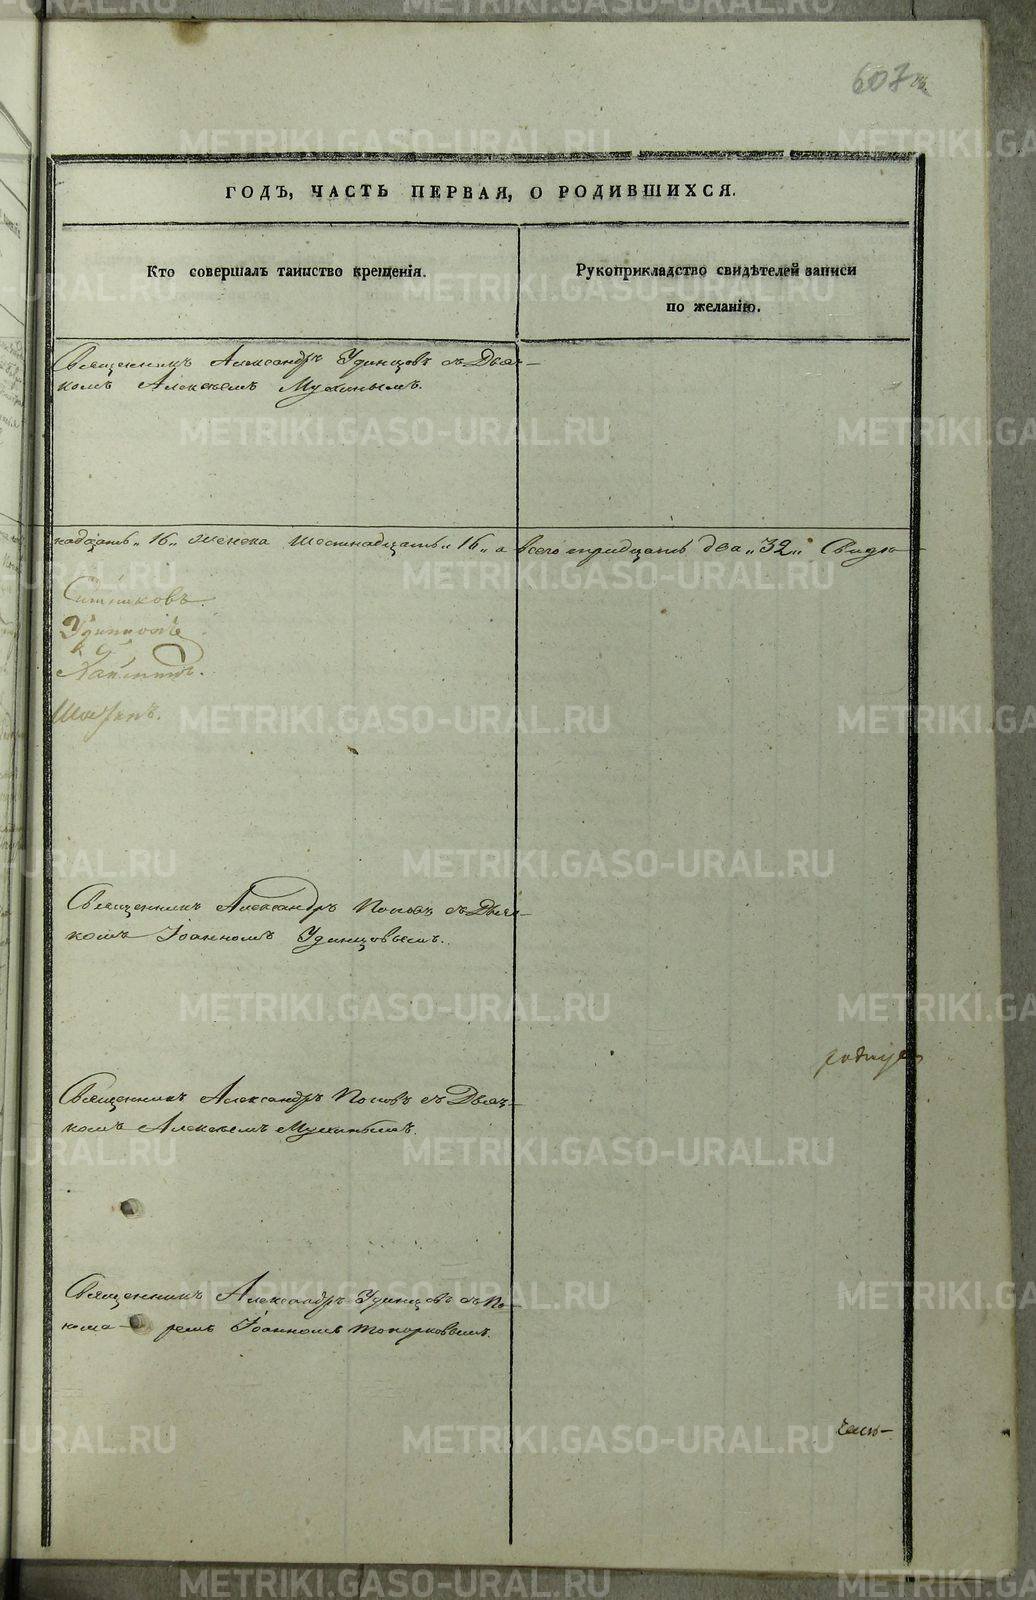 607
ГОДЪ, ЧАСТЬ ПЕРВАЯ, О РОДИВШИХСЯ.
Кто совершалъ таинство крещенія.
Рукоприкладство свидѣтелей записи
по желанію.
Священникъ Александръ Удинцовъ съ Дьяч-
комъ Алексѣемъ Мухинымъ.
надцать „16„ женска шестнадцать „16„ а всего тридцать два „32„ Свидѣ-
Ситниковъ.
Удинцовъ
Священникъ Александръ Поповъ съ Дьяч-
комъ Іоанномъ Удинцовымъ.
родите
Священникъ Александръ Поповъ съ Дьяч-
комъ Алексѣемъ Мухинымъ.
Священникъ Александръ Удинцовъ съ По-
нома- ремъ Іоанномъ Топорковымъ.
METRIKI.GASO-URAL.RU